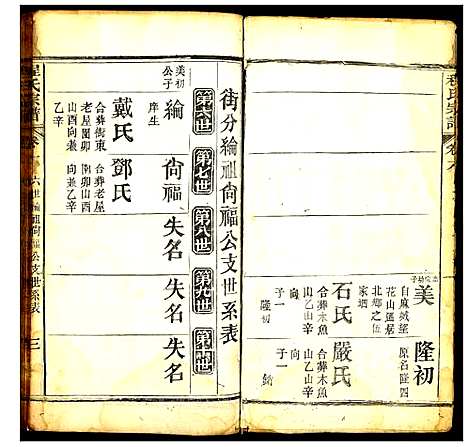 程氏宗譜
志宗幼子
美
自麻城望
花山遷居
北鄉之伍
家塆
石氏
合葬木魚
山乙山辛
向
子一
隆初
隆初
原名隆四
嚴氏
合葬木魚
山乙山辛
向
子一
綸
街分綸祖尙福公支世系表
第六世
第七世
第八世
第九世
第十世
美初
公子
綸
庠生
戴氏
合葬衝東
老屋園卯
山酉向兼
乙辛
尙福
鄧氏
合葬老屋
園卯山酉
向兼乙辛
失名
失名
失名
程氏宗譜
六世綸祖尙福公支世系表
三